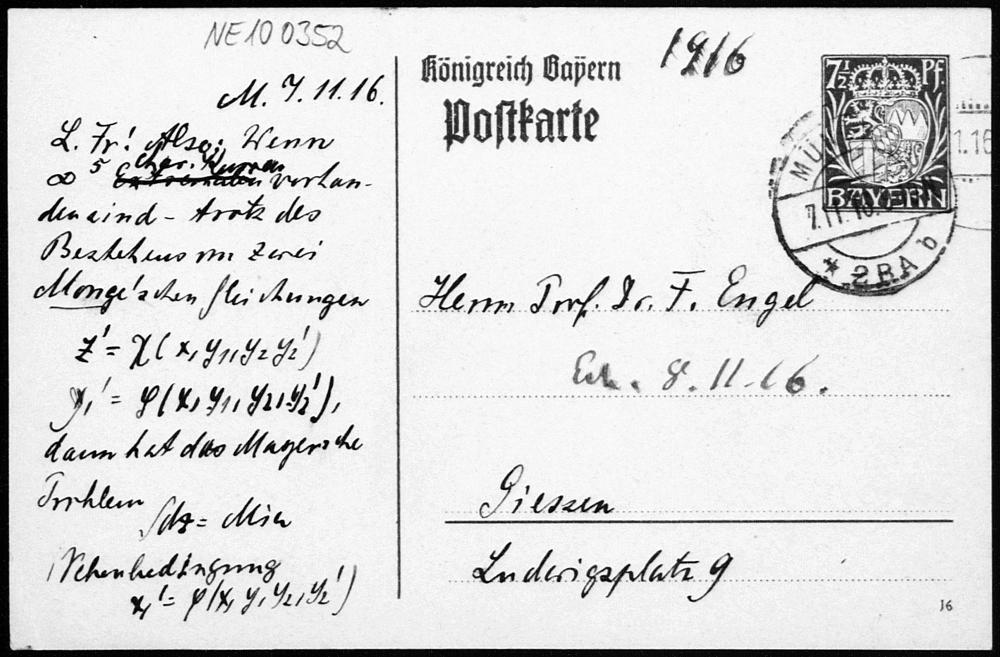 NE100352
M. 7.11.16.
L. Fr! Also: Wenn
char. Kurven
∞⁵ Extremalen vorhan-
den sind – trotz des
Bestehens von zwei
Monge'schen Gleichungen
z' = χ(x, y₁, y₂ y₂')
y₁' = φ(x, y₁, y₂, y₂'),
dann hat das Mayersche
Problem
∫dz = Min
Nebenbedingung
y₁' = φ(x, y₁ y₂, y₂')
Königreich Bayern
1916
Postkarte
7½ Pf.
BAYERN
7.11.
* 2.BA b
1.16
Herrn Prof. Dr. F. Engel
8.11.16.
Giessen
Ludwigsplatz 9
16